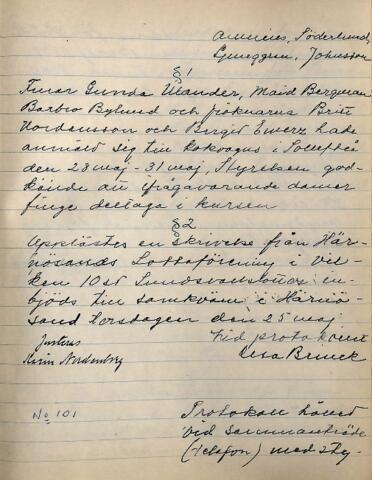 Söderlund,
Ljunggren, Johnsson
§1
Fruar Gunda Ulander, Maid Bergman
Barbro Bylund och fröknarna Britt
och Birgit hade
anmält sig till kokvagns i Sollefteå
den 28 maj - 31 maj, Styrelsen god-
kände att ifrågavarande damer
finge deltaga i kursen
§2
Upplästes en skrivelse från Här-
nösands Lottaförening i vil-
ken 10 st Sundsvallslottor in-
bjöds till samkväm i Härnö-
sand torsdagen den 25 maj
Justeras Vid protokollet
Karin Nordenberg Lisa Brinck
No 101
Protokoll hållet
vid sammanträde
(telefon) med sty-